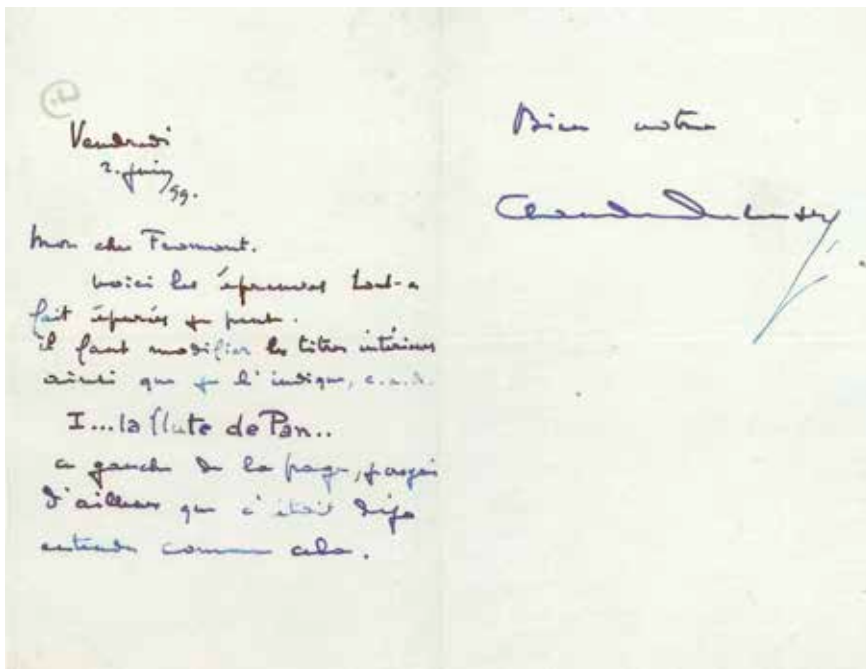 Vendredi
2. juin
99.
Mon cher Fromont.
voici les épreuves tout-a
fait épurées
il faut modifier les titres intérieurs
ainsi que je l'indique, c.a.d.
I...la flute de Pan..
a gauche de la page, je croyais
d'ailleurs que c'était déja
entendu comme cela.
Bien votre
Claude Debussy